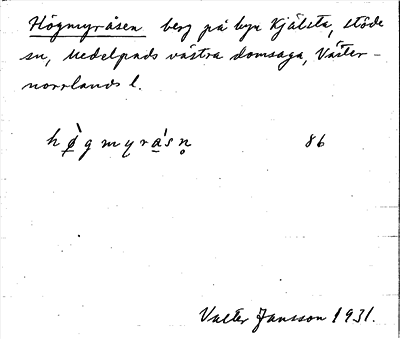 Högmyråsen berg på byn Kjälsta, Stöde
sn, Medelpads västra domsaga, Väster-
norrlands l.
hø̀gmyråˈsn̥ 86
Valter Jansson 1931.